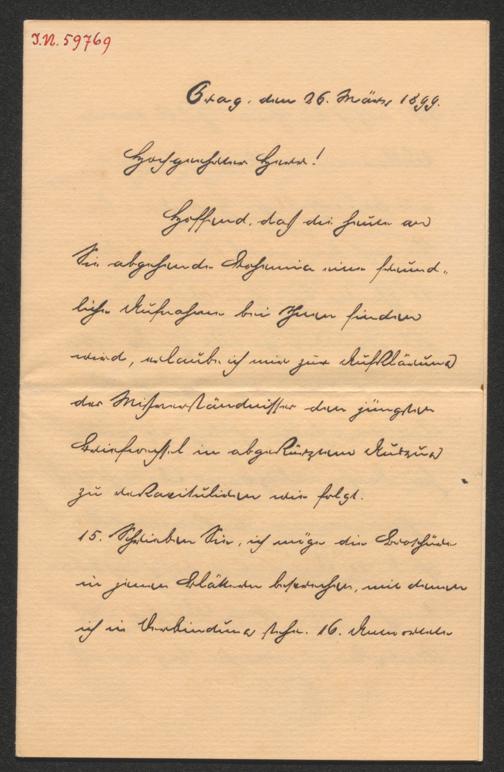 I.N. 59769
Prag, den 26. März 1899.
Hochgeehrter Herr!
Hoffend, daß die heute an
Sie abgehende Bohemia eine freund-
liche Aufnahme bei Ihnen finden
wird, erlaube ich mir zur Aufklärung
der Mißverständnisse den jüngsten
Briefwechsel in abgekürztem Auszug
zu rekapituliren wie folgt.
15. Schrieben Sie, ich möge die Broschüre
in jenen Blättern besprechen, mit denen
ich in Verbindung stehe. 16. Antwortete